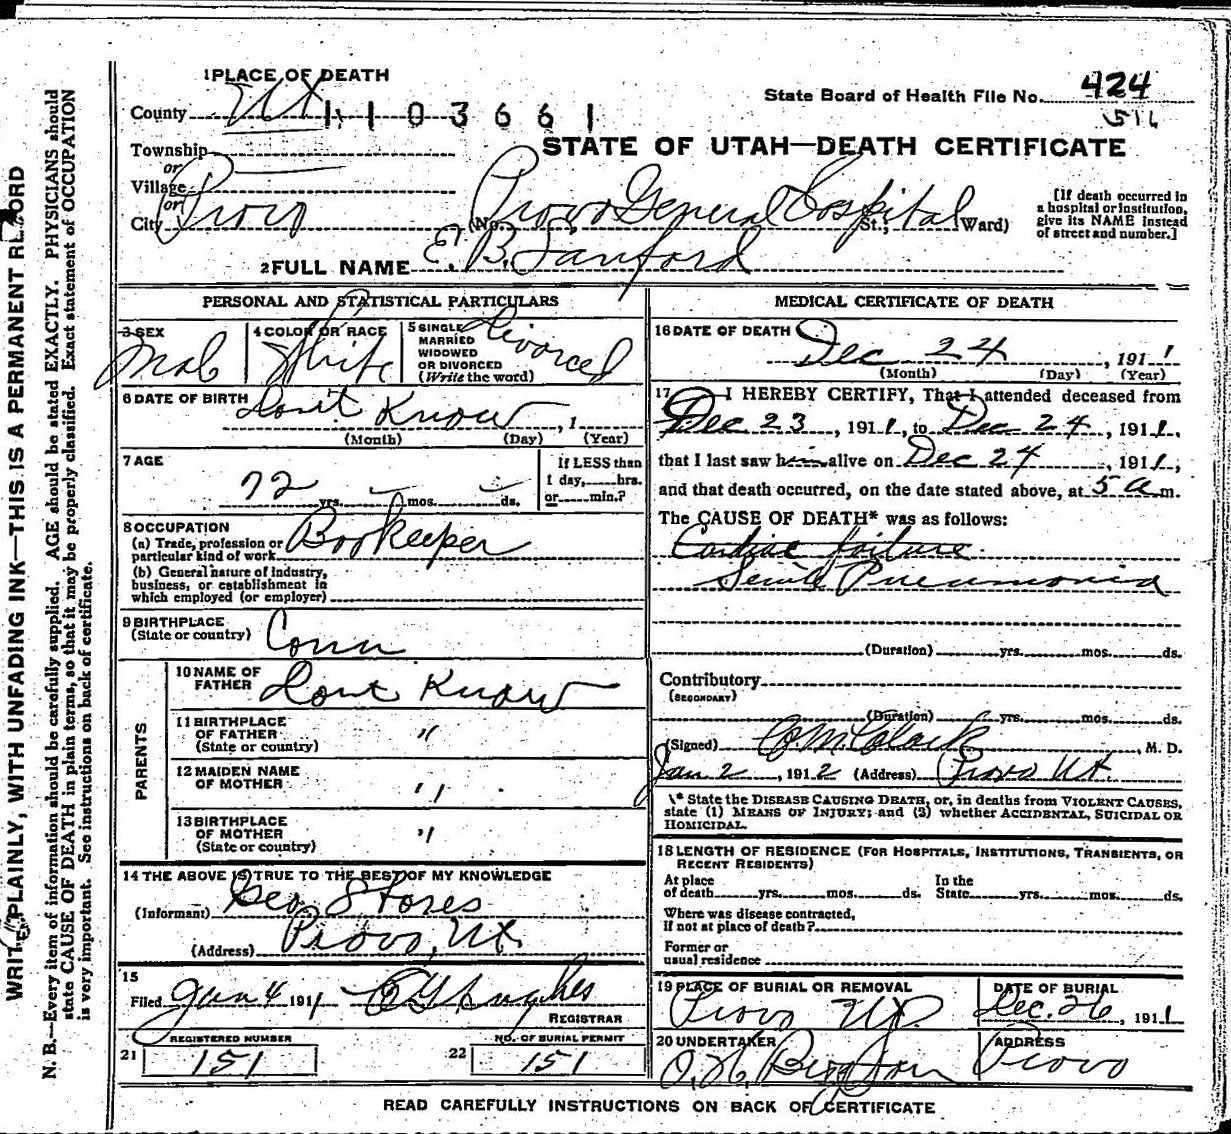 1 PLACE OF DEATH
County Ut 1103661
State Board of Health File No. 424
516
STATE OF UTAH—DEATH CERTIFICATE
Township
or
Village
or
City Provo (No. Provo General Hospital St.; Ward)
[If death occurred in
a hospital or institution,
give its NAME instead
of street and number.]
2 FULL NAME E. B. Sanford
PERSONAL AND STATISTICAL PARTICULARS
3 SEX
Male
4 COLOR OR RACE
White
5 SINGLE
MARRIED
WIDOWED
OR DIVORCED
(Write the word)
Divorced
6 DATE OF BIRTH Dont Know , 1
(Month) (Day) (Year)
7 AGE
72 yrs. – mos. – ds.
If LESS than
1 day,......hrs.
or......min.?
8 OCCUPATION
(a) Trade, profession or
particular kind of work Bookeeper
(b) General nature of industry,
business, or establishment in
which employed (or employer)
9 BIRTHPLACE
(State or country) Conn
PARENTS
10 NAME OF
FATHER Dont Know
11 BIRTHPLACE
OF FATHER "
(State or country)
12 MAIDEN NAME
OF MOTHER "
13 BIRTHPLACE
OF MOTHER "
(State or country)
14 THE ABOVE IS TRUE TO THE BEST OF MY KNOWLEDGE
(Informant) Geo Stores
(Address) Provo, Ut.
15
Filed Jan 4 191 Hughes
REGISTRAR
REGISTERED NUMBER
21 151
NO. OF BURIAL PERMIT
22 151
MEDICAL CERTIFICATE OF DEATH
16 DATE OF DEATH
Dec 24 , 1911
(Month) (Day) (Year)
17 I HEREBY CERTIFY, That I attended deceased from
Dec 23 , 1911, to Dec 24 , 1911,
that I last saw him alive on Dec 24 , 1911,
and that death occurred, on the date stated above, at 5 a m.
The CAUSE OF DEATH* was as follows:
Cardiac failure.
Senile Pneumonia
(Duration) yrs. mos. ds.
Contributory
(SECONDARY)
(Duration) yrs. mos. ds.
(Signed) Clark , M. D.
Jan 2 , 1912 (Address) Provo Ut.
* State the DISEASE CAUSING DEATH, or, in deaths from VIOLENT CAUSES,
state (1) MEANS OF INJURY; and (2) whether ACCIDENTAL, SUICIDAL OR
HOMICIDAL.
18 LENGTH OF RESIDENCE (FOR HOSPITALS, INSTITUTIONS, TRANSIENTS, OR
RECENT RESIDENTS)
At place
of death yrs. mos. ds.
In the
State yrs. mos. ds.
Where was disease contracted,
If not at place of death?
Former or
usual residence
19 PLACE OF BURIAL OR REMOVAL
Provo Ut.
DATE OF BURIAL
Dec. 26 , 1911
20 UNDERTAKER
ADDRESS
Provo
READ CAREFULLY INSTRUCTIONS ON BACK OF CERTIFICATE
WRITE PLAINLY, WITH UNFADING INK—THIS IS A PERMANENT RECORD
N. B.—Every item of information should be carefully supplied. AGE should be stated EXACTLY. PHYSICIANS should
state CAUSE OF DEATH in plain terms, so that it may be properly classified. Exact statement of OCCUPATION
is very important. See instructions on back of certificate.